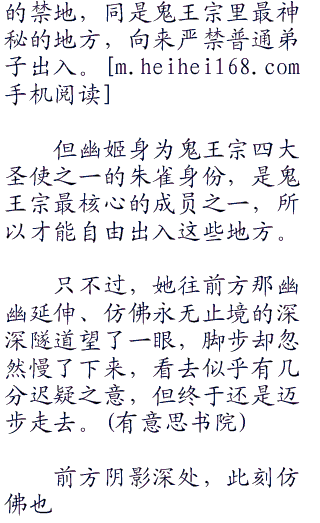 的禁地，同是鬼王宗里最神
秘的地方，向来严禁普通弟
子出入。[m.heihei168.com
手机阅读]
但幽姬身为鬼王宗四大
圣使之一的朱雀身份，是鬼
王宗最核心的成员之一，所
以才能自由出入这些地方。
只不过，她往前方那幽
幽延伸、仿佛永无止境的深
深隧道望了一眼，脚步却忽
然慢了下来，看去似乎有几
分迟疑之意，但终于还是迈
步走去。(有意思书院)
前方阴影深处，此刻仿
佛也